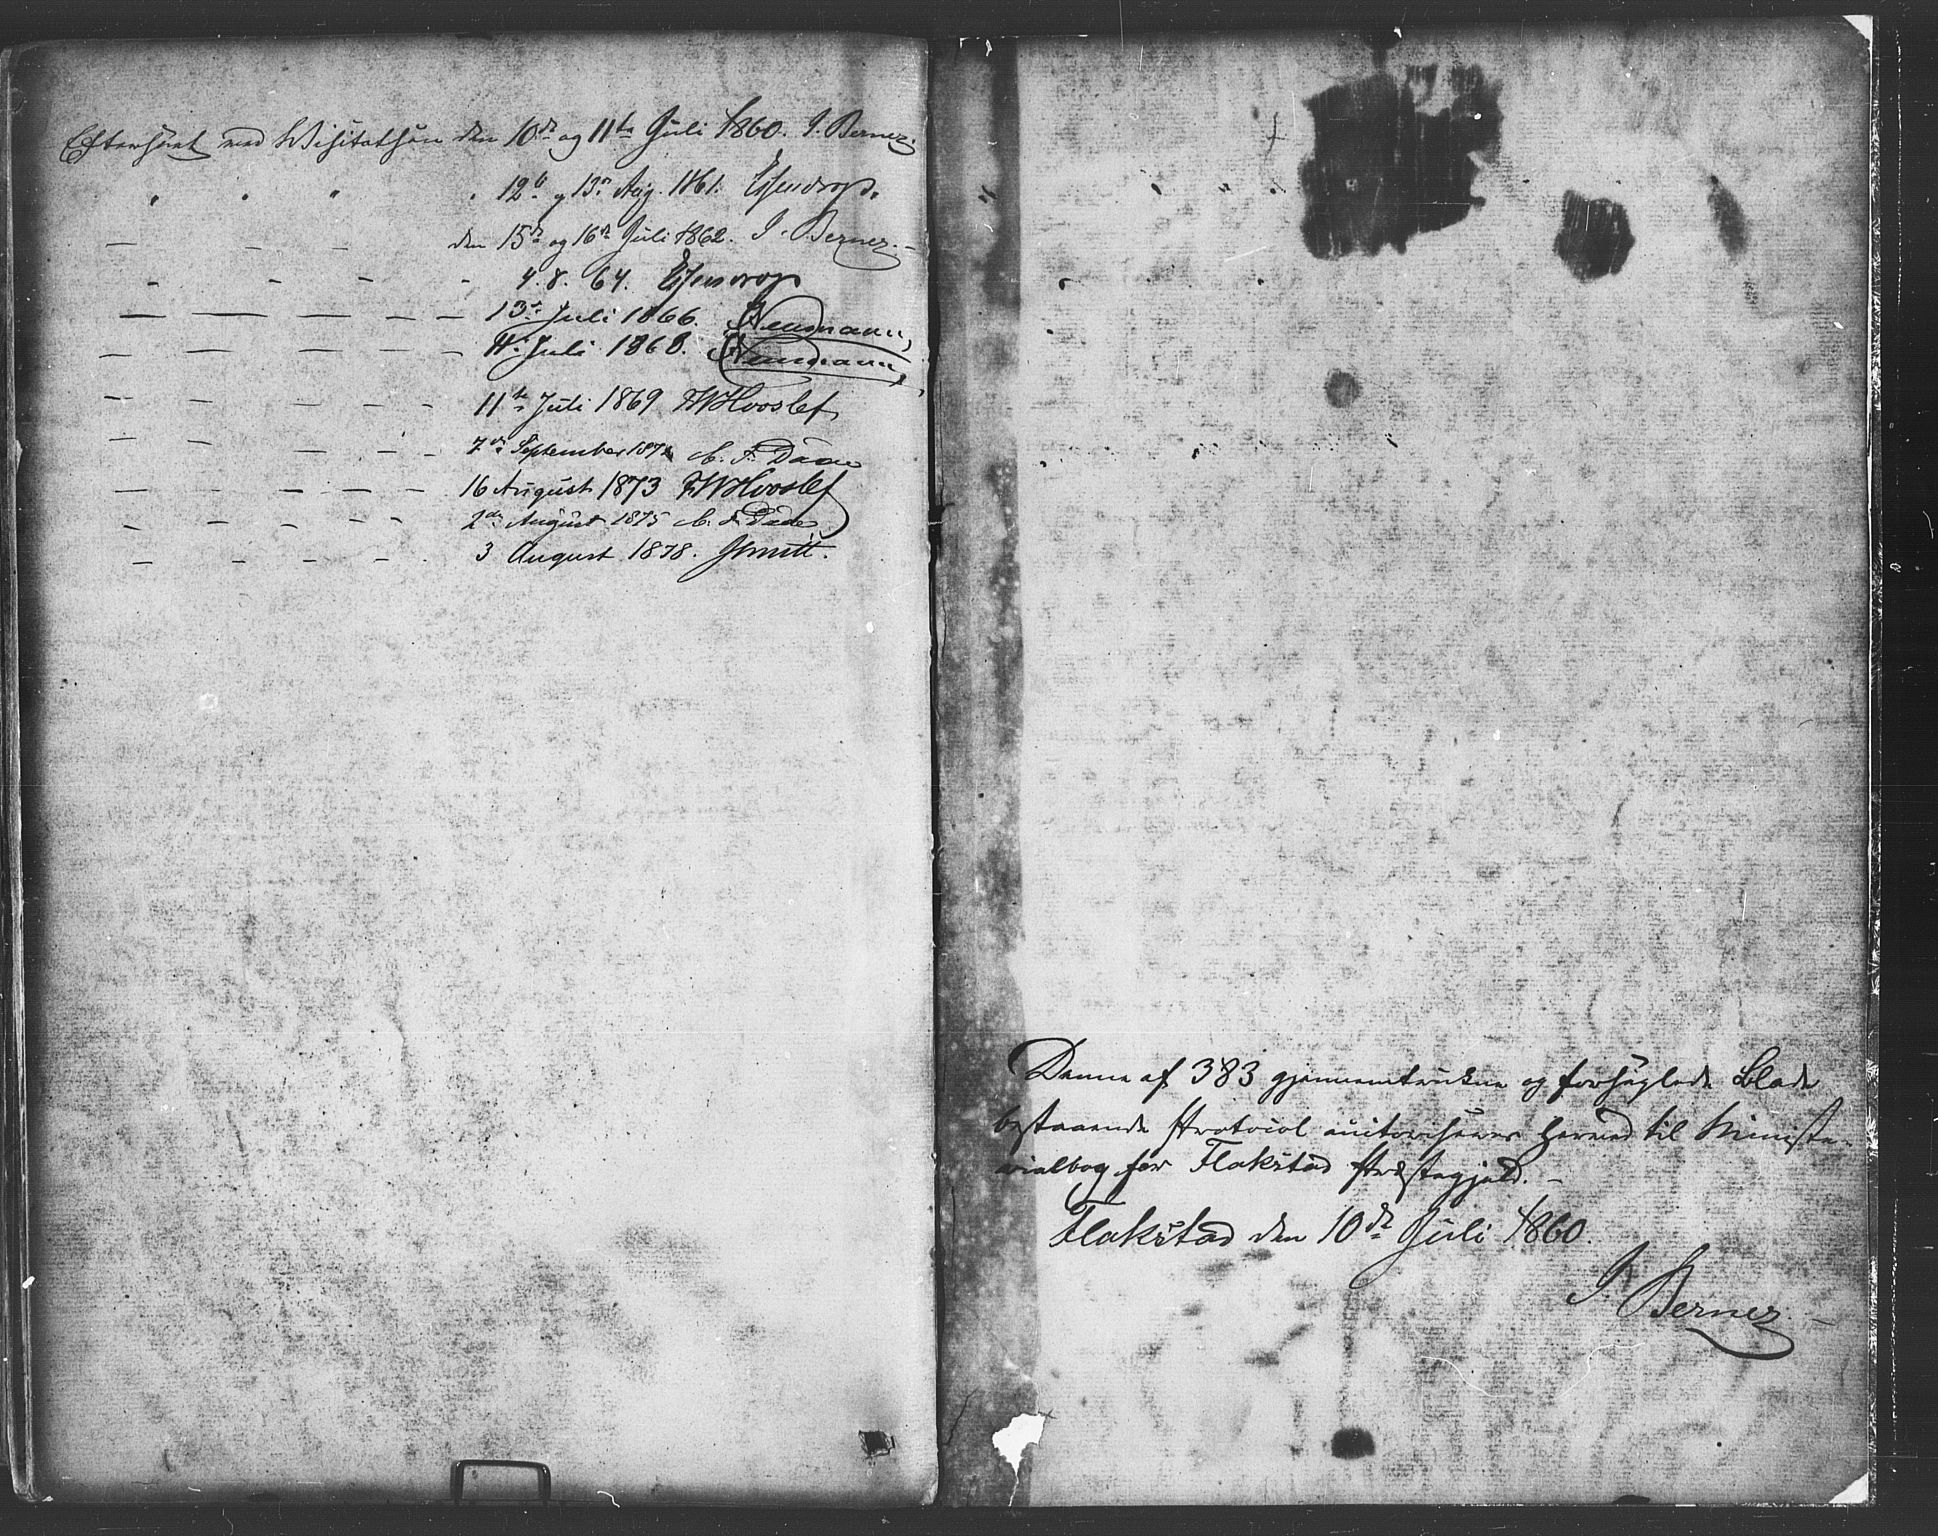 Efterseet ved Visitatsen den 10de og 11te Juli 1860. J. Berner.
" " " " 12te og 13de Aug. 1861. Essendrop.
— — — den 15de og 16de Juli 1862. J. Berner. —
— — — — 4.8.64. Essendrop
— — — — — 13de Juli 1866. J. N. Neumann
— — — — — 4de Juli 1868. J. N. Neumann
— — — — — 11te Juli 1869 FWHvoslef
— — — — — 7de September 187 C. F. Daae
— — — — — 16 August 1873 FWHvoslef
— — — — — 2den August 1875 C. F. Daae
— — — — — 3 August 1878. JSmitt.
Denne af 383 gjennemtrukne og forseglede Blade
bestaaende Protocol autoriseres herved til Ministe-
rialbog for Flakstad Præstegjeld. —
Flakstad den 10de Juli 1860.
J. Berner. —